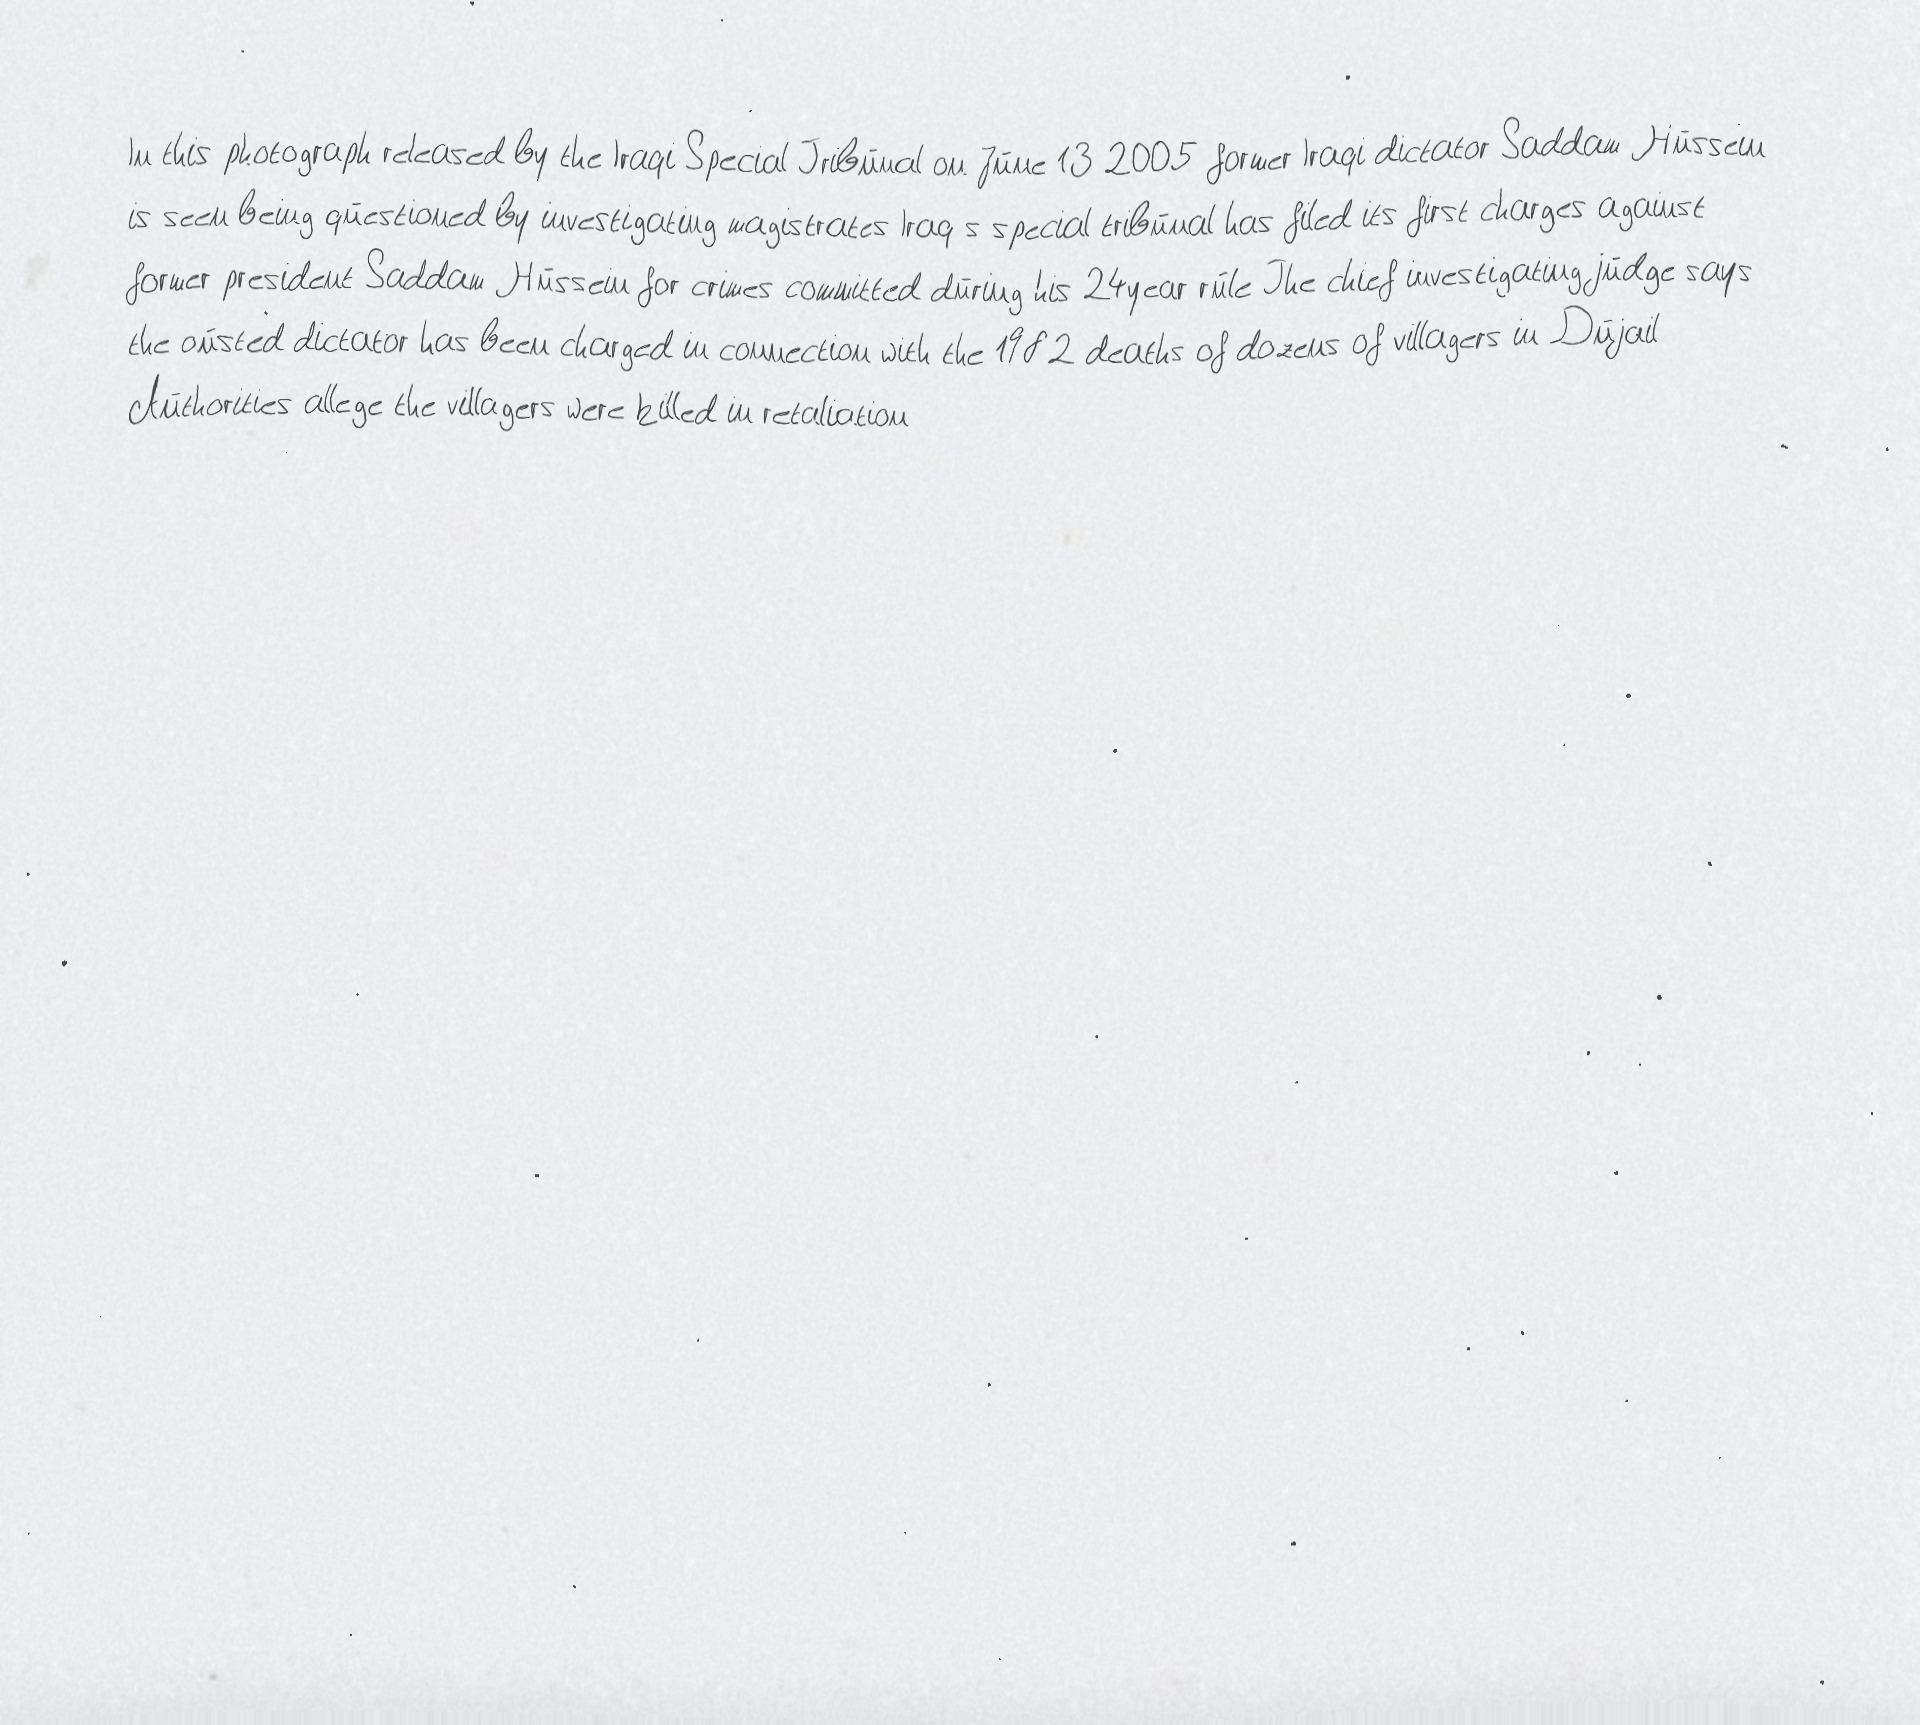 In this photograph released by the Iraqi Special Tribunal on June 13 2005 former Iraqi dictator Saddam Hussein
is seen being questioned by investigating magistrates Iraq s special tribunal has filed its first charges against
former president Saddam Hussein for crimes committed during his 24year rule The chief investigating judge says
the ousted dictator has been charged in connection with the 1982 deaths of dozens of villagers in Dujail
Authorities allege the villagers were killed in retaliation